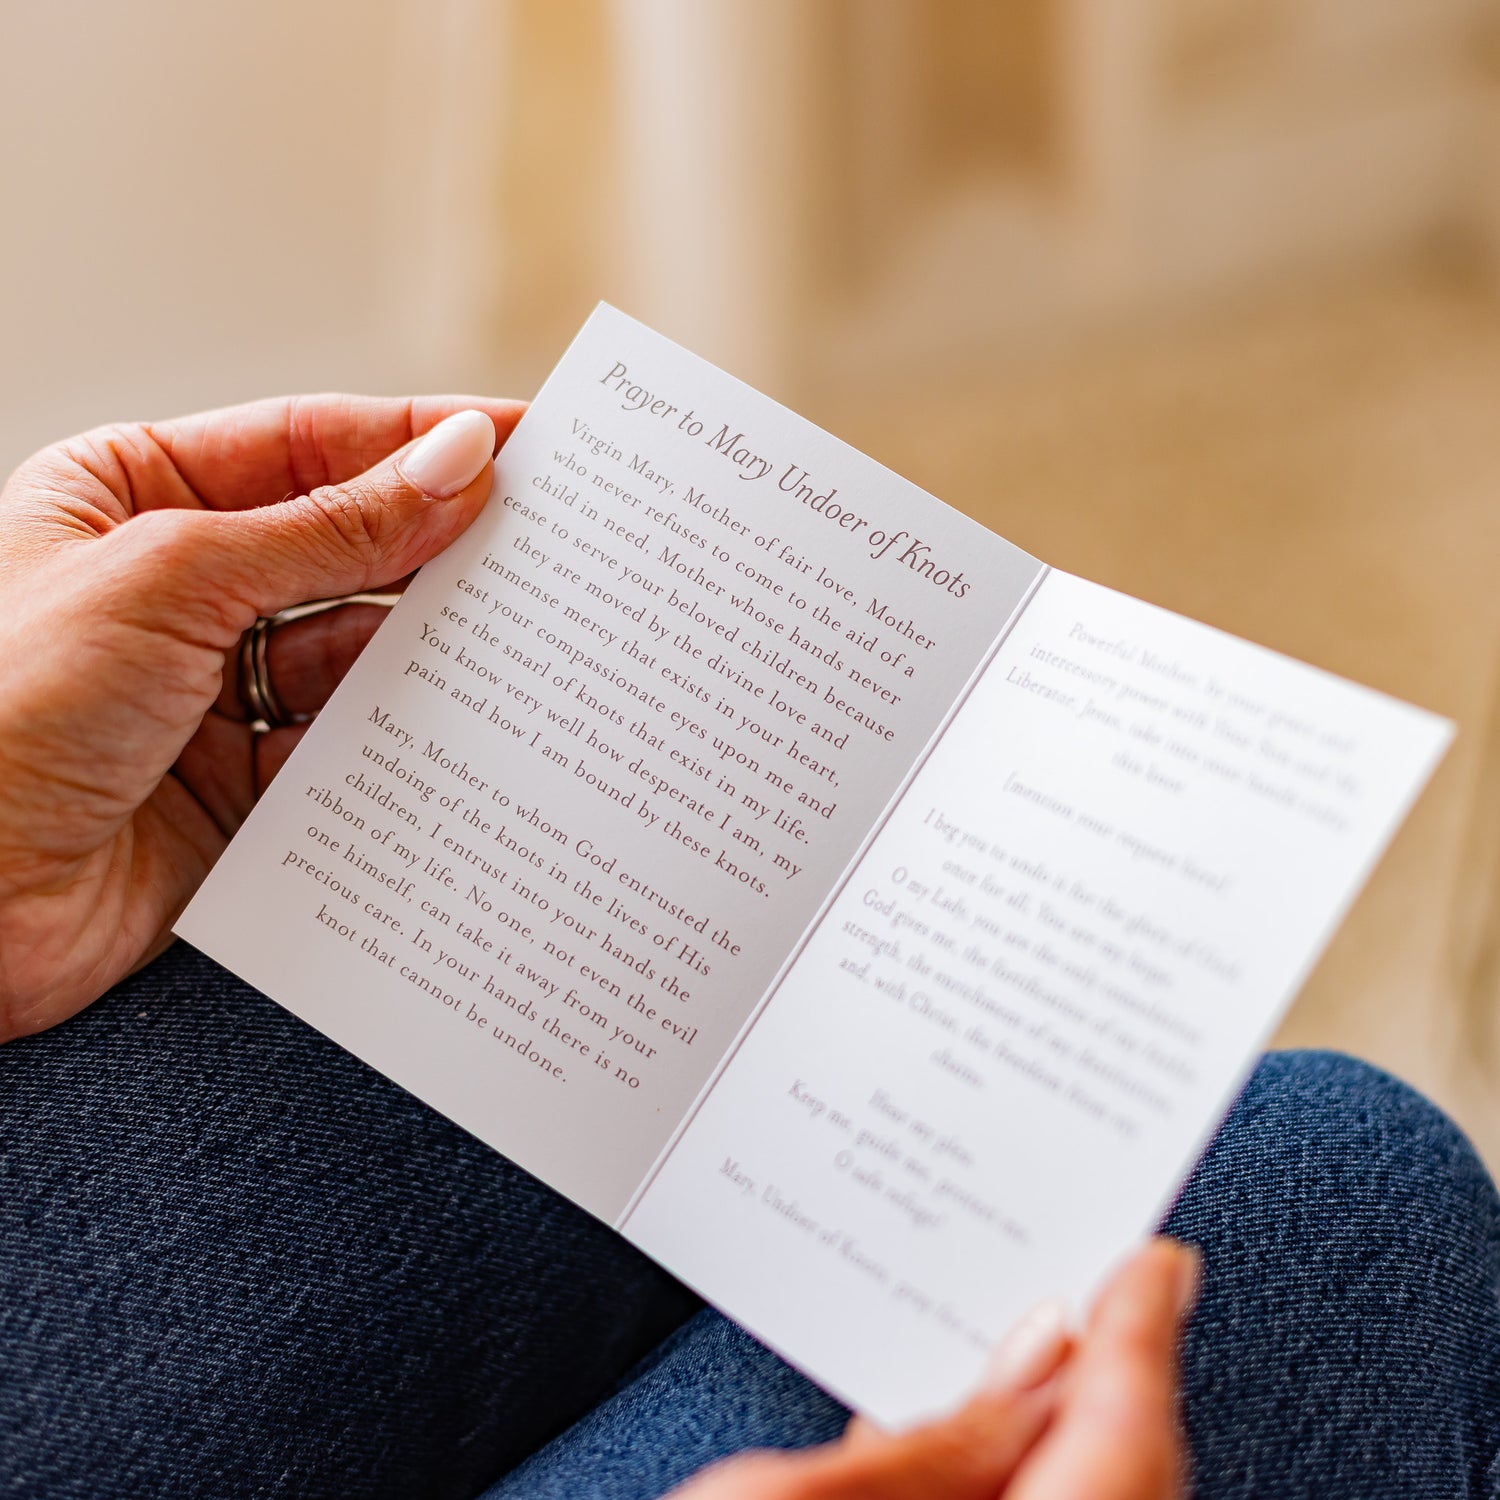 Prayer to Mary Undoer of Knots
Virgin Mary, Mother of fair love, Mother
who never refuses to come to the aid of a
child in need, Mother whose hands never
cease to serve your beloved children because
they are moved by the divine love and
immense mercy that exists in your heart,
cast your compassionate eyes upon me and
see the snarl of knots that exist in my life.
You know very well how desperate I am, my
pain and how I am bound by these knots.
Mary, Mother to whom God entrusted the
undoing of the knots in the lives of His
children, I entrust into your hands the
ribbon of my life. No one, not even the evil
one himself, can take it away from your
precious care. In your hands there is no
knot that cannot be undone.
Powerful Mother, by your grace and
intercessory power with Your Son and My
Liberator, Jesus, take into your hands today
this knot
[mention your request here]
I beg you to undo it for the glory of God,
once for all. You are my hope.
O my Lady, you are the only consolation
God gives me, the fortification of my feeble
strength, the enrichment of my destitution,
and, with Christ, the freedom from my
chains.
Hear my plea.
Keep me, guide me, protect me,
O safe refuge!
Mary, Undoer of Knots, pray for